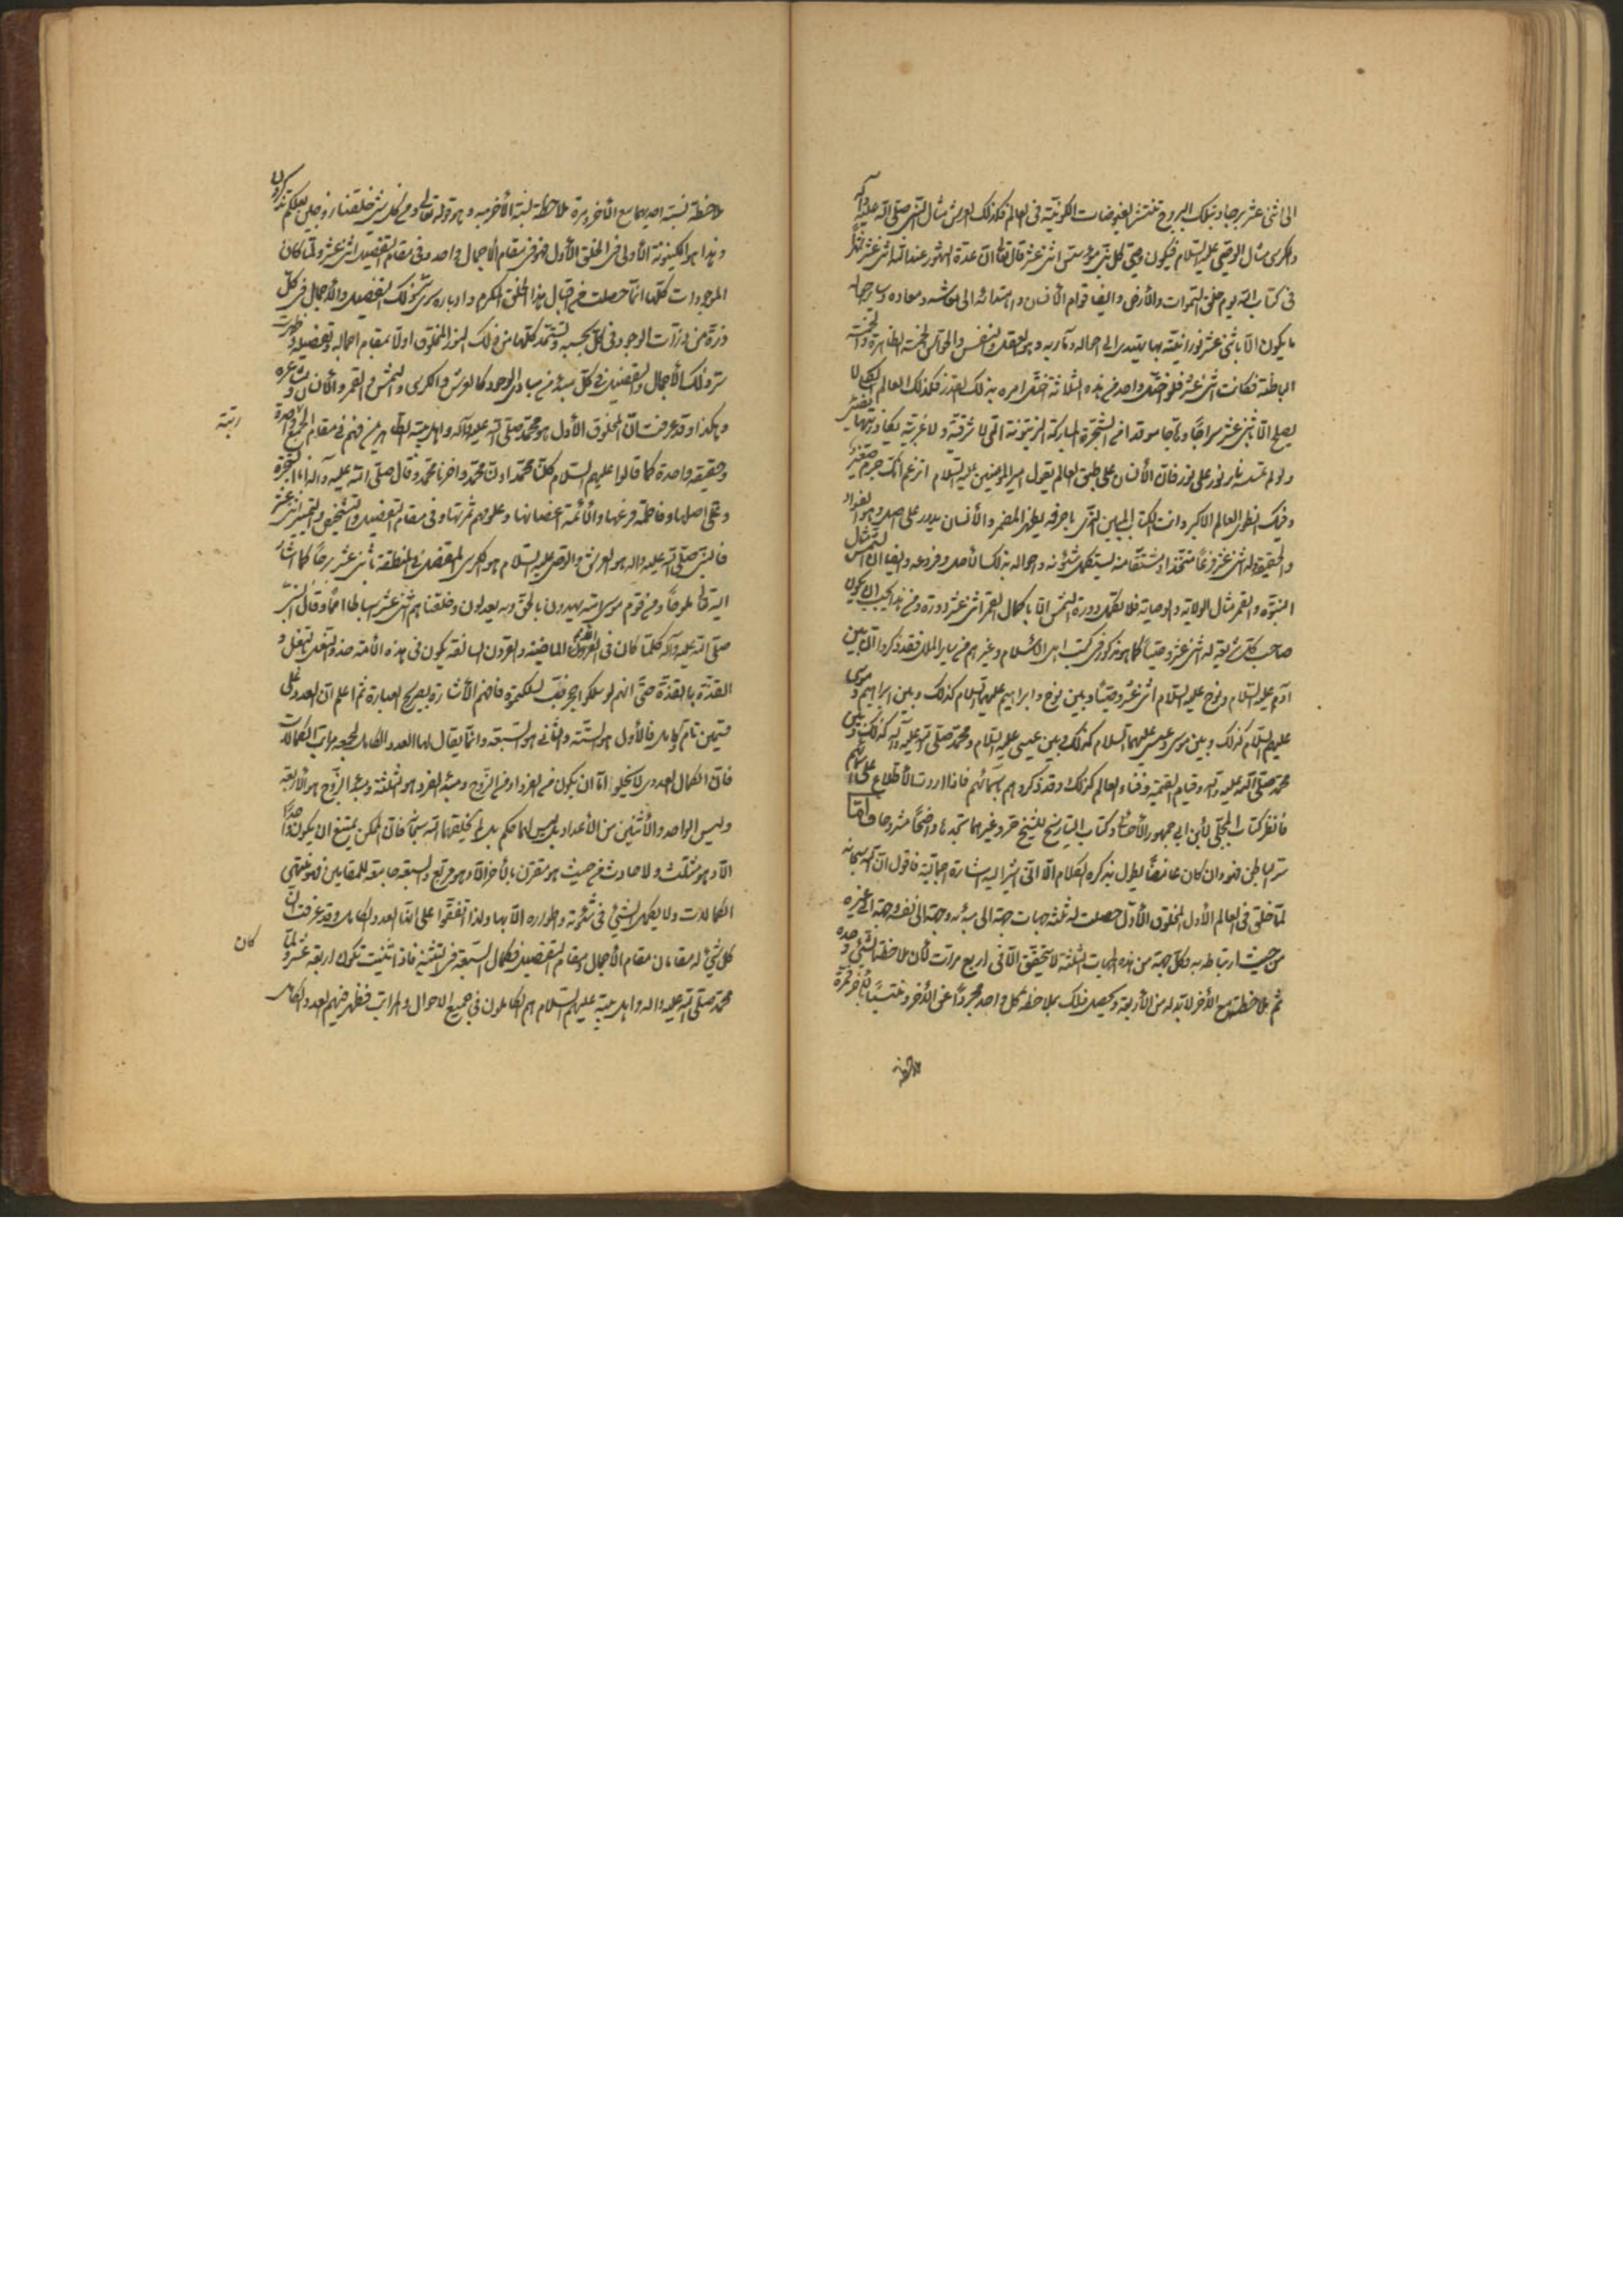 الى اثنى عشر برجا وبتلك البروج تنتشر الفيوضات الكونيّة فى العالم فكذلك العرش مثال النبى صلى الله عليه وآله
والكرسى مثال الوصى عليه السلام فيكون وصى كل نبى مرسل اثنى عشر قال تعالى ان عدة الشهور عند الله اثنى عشر شهرا
فى كتاب الله يوم خلق السموات والأرض وايضا قوام الأنسان واهتدائه الى معاشه ومعاده وساير جهاته
ما يكون الا باثنى عشر نورانية بها يهتدى الى احواله ومآربه وهو العقل والنفس والحواس الخمسة الظاهرة والخمسة
الباطنة فكانت اثنى عشر فلو اختل واحد من هذه الثلاثة اختل امره بذلك القدر فكذلك العالم لا
يصلح الا باثنى عشر سراجا وهاجا موقدا من الشجرة المباركة الزيتونة التى لا شرقية ولا غربية يكاد زيتها يضئ
ولو لم تمسسه نار نور على نور فان الأنسان على طبق العالم يقول امير المؤمنين عليه السلام اتزعم انك جرم صغير
وفيك انطوى العالم الاكبر وانت الكتاب المبين الذى باحرفه يظهر المضمر والأنسان يدور على اصل وهو الفؤاد
والحقيقة وله اثنى عشر فرعا متخذا مشتقا منه ليستكمل شئونه واحواله بذلك الأصل وفروعه وايضا ان الشمس مثال
النبوّة والقمر مثال الولاية والوصاية فلا يكمل دورة الشمس الا باكمال القمر اثنى عشر دورة ومن هذا يجب ان يكون
صاحب كل شريعة له اثنى عشر وصيا كما هو مذكور فى كتب اهل الاسلام وغيرهم من ساير الملل فقد ذكروا ان بين
آدم عليه السلام ونوح عليه السلام اثنى عشر وصيا وبين نوح وابراهيم عليهما السلام كذلك وبين ابراهيم وموسى
عليهم السلام كذلك وبين موسى وعيسى عليهما السلام كذلك وبين عيسى عليه السلام ومحمد صلى الله عليه وآله كذلك وبين
محمد صلى الله عليه وآله وقيام القيمة وفناء العالم كذلك وقد ذكروهم باسمائهم فاذا اردت الأطلاع على اسمائهم
فانظر كتاب المجلى لأبن ابى جمهور الأحسائى وكتاب التاريخ للشيخ حر وغيرهما تجدها واضحا مشروحا واما
سر الباطن فهو وان كان غامضا يطول بذكره الكلام الا انى اشير اليه اشارة اجمالية فاقول ان الله سبحانه
لما خلق فى العالم الأول المخلوق الأول حصلت له ثلثة جهات جهة الى مبدئه وجهة الى نفسه وجهة الى غيره
من حيث ارتباطه به وكل جهة من هذه الجهات الثلثة لا يتحقق الا فى اربع مراتب لأن ملاحظة الشئ وحده
ثم ملاحظته مع الآخر لا بد له من الأربعة ويحصل ذلك بملاحظة كل واحد مجردا عن الآخر ومنتسبا بالآخر فمرة
ملاحظة
ملاحظة نسبة احديهما مع الآخر ومرة ملاحظة نسبة الآخر به وهو قوله تعالى ومن كل شئ خلقنا زوجين لعلكم تذكرون
وهذا هو الكينونة الأولى فى الخلق الأول فهو فى مقام الأجمال واحد وفى مقام التفصيل اثنى عشر ولما كان
الموجودات كلها انما حصلت من اقبال هذا الخلق المكرم وادباره سرى سر ذلك التفصيل والأجمال فى كل
ذرة من ذرات الوجود فى كل بحسبه وتستمد كلها من ذلك النور المخلوق اولا بمقام اجماله وتفصيله وظهرت
سر ذلك الأجمال والتفصيل فى كل مبدء من مبادى الوجود كالعرش والكرسى والشمس والقمر والأنسان ومشاعره
وهكذا وقد عرفت ان المخلوق الأول هو محمد صلى الله عليه وآله واهل بيته الطاهرين فهم فى مقام الجمع واحدة
رتبة
وحقيقة واحدة كما قالوا عليهم السلام كلنا محمد اولنا محمد واخرنا محمد وقال صلى الله عليه وآله انا الشجرة
وعلى اصلها وفاطمة فرعها والأئمة اغصانها وعلومهم ثمرتها وفى مقام التفصيل والتشخيص والتمييز اثنى عشر
فالنبى صلى الله عليه واله هو العرش والوصى عليه السلام هو الكرسى المفصل فى المنطقة باثنى عشر برجا كما اشار
اليه تعالى تلويحا ومن قوم موسى امة يهدون بالحق وبه يعدلون وقطعناهم اثنى عشر اسباطا امما وقال النبى
صلى الله عليه وآله كلما كان فى الأمم الماضية والقرون السالفة يكون فى هذه الأمة حذو النعل بالنعل و
القذة بالقذة حتى انهم لو سلكوا جحر ضب لسلكتموه فافهم الأشارة بصريح العبارة ثم اعلم ان العدد على
قسمين تام وكامل فالأول هو الستة والثانى هو السبعة وانما يقال لها العدد الكامل لجمعه مراتب الكمالات
فان الكمال العددى لا يخلو اما ان يكون من الفرد او من الزوج ومبدء الفرد هو الثلثة ومبدء الزوج هو الأربعة
وليس الواحد والأثنين من الأعداد بل وليس لهما حكم بل لم يخلقهما الله سبحانه فان الممكن يمتنع ان يكون واحدا
الا وهو مثلث ولا حادث من حيث هو مقترن بالآخر الا وهو مربع والسبعة جامعة للمقامين فهو منتهى
الكمالات ولا يكمل الشئ فى شئونه واطواره الا بها ولذا اتفقوا على انها العدد الكامل وقد عرفت ان
كل شئ له مقامان مقام الأجمال ومقام التفصيل فكمال السبعة فى التثنية فاذا اثنيت تكون اربعة عشر ولما
كان
محمد صلى الله عليه واله واهل بيته عليهم السلام هم الكاملون فى جميع الاحوال والمراتب فظهر فيهم العدد الكامل